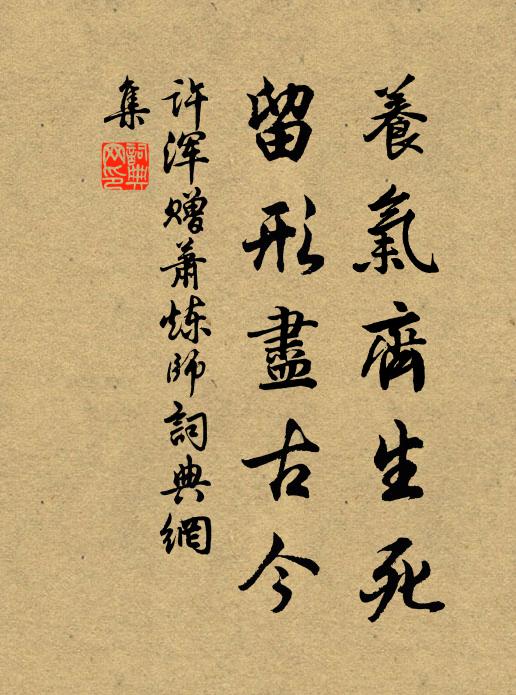 養氣齊生死
留形盡古今
许浑赠萧炼師詞典網
集
詞典
网印